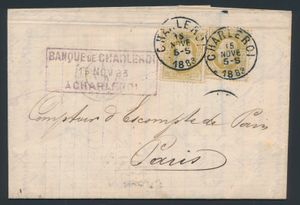 CHARLEROI
15
NOVE
5-S
1883
CHARLEROI
15
NOVE
5-S
1883
BANQUE DE CHARLEROI
15 NOV 83
A CHARLEROI
Comptoir d'Escompte de Paris
Paris